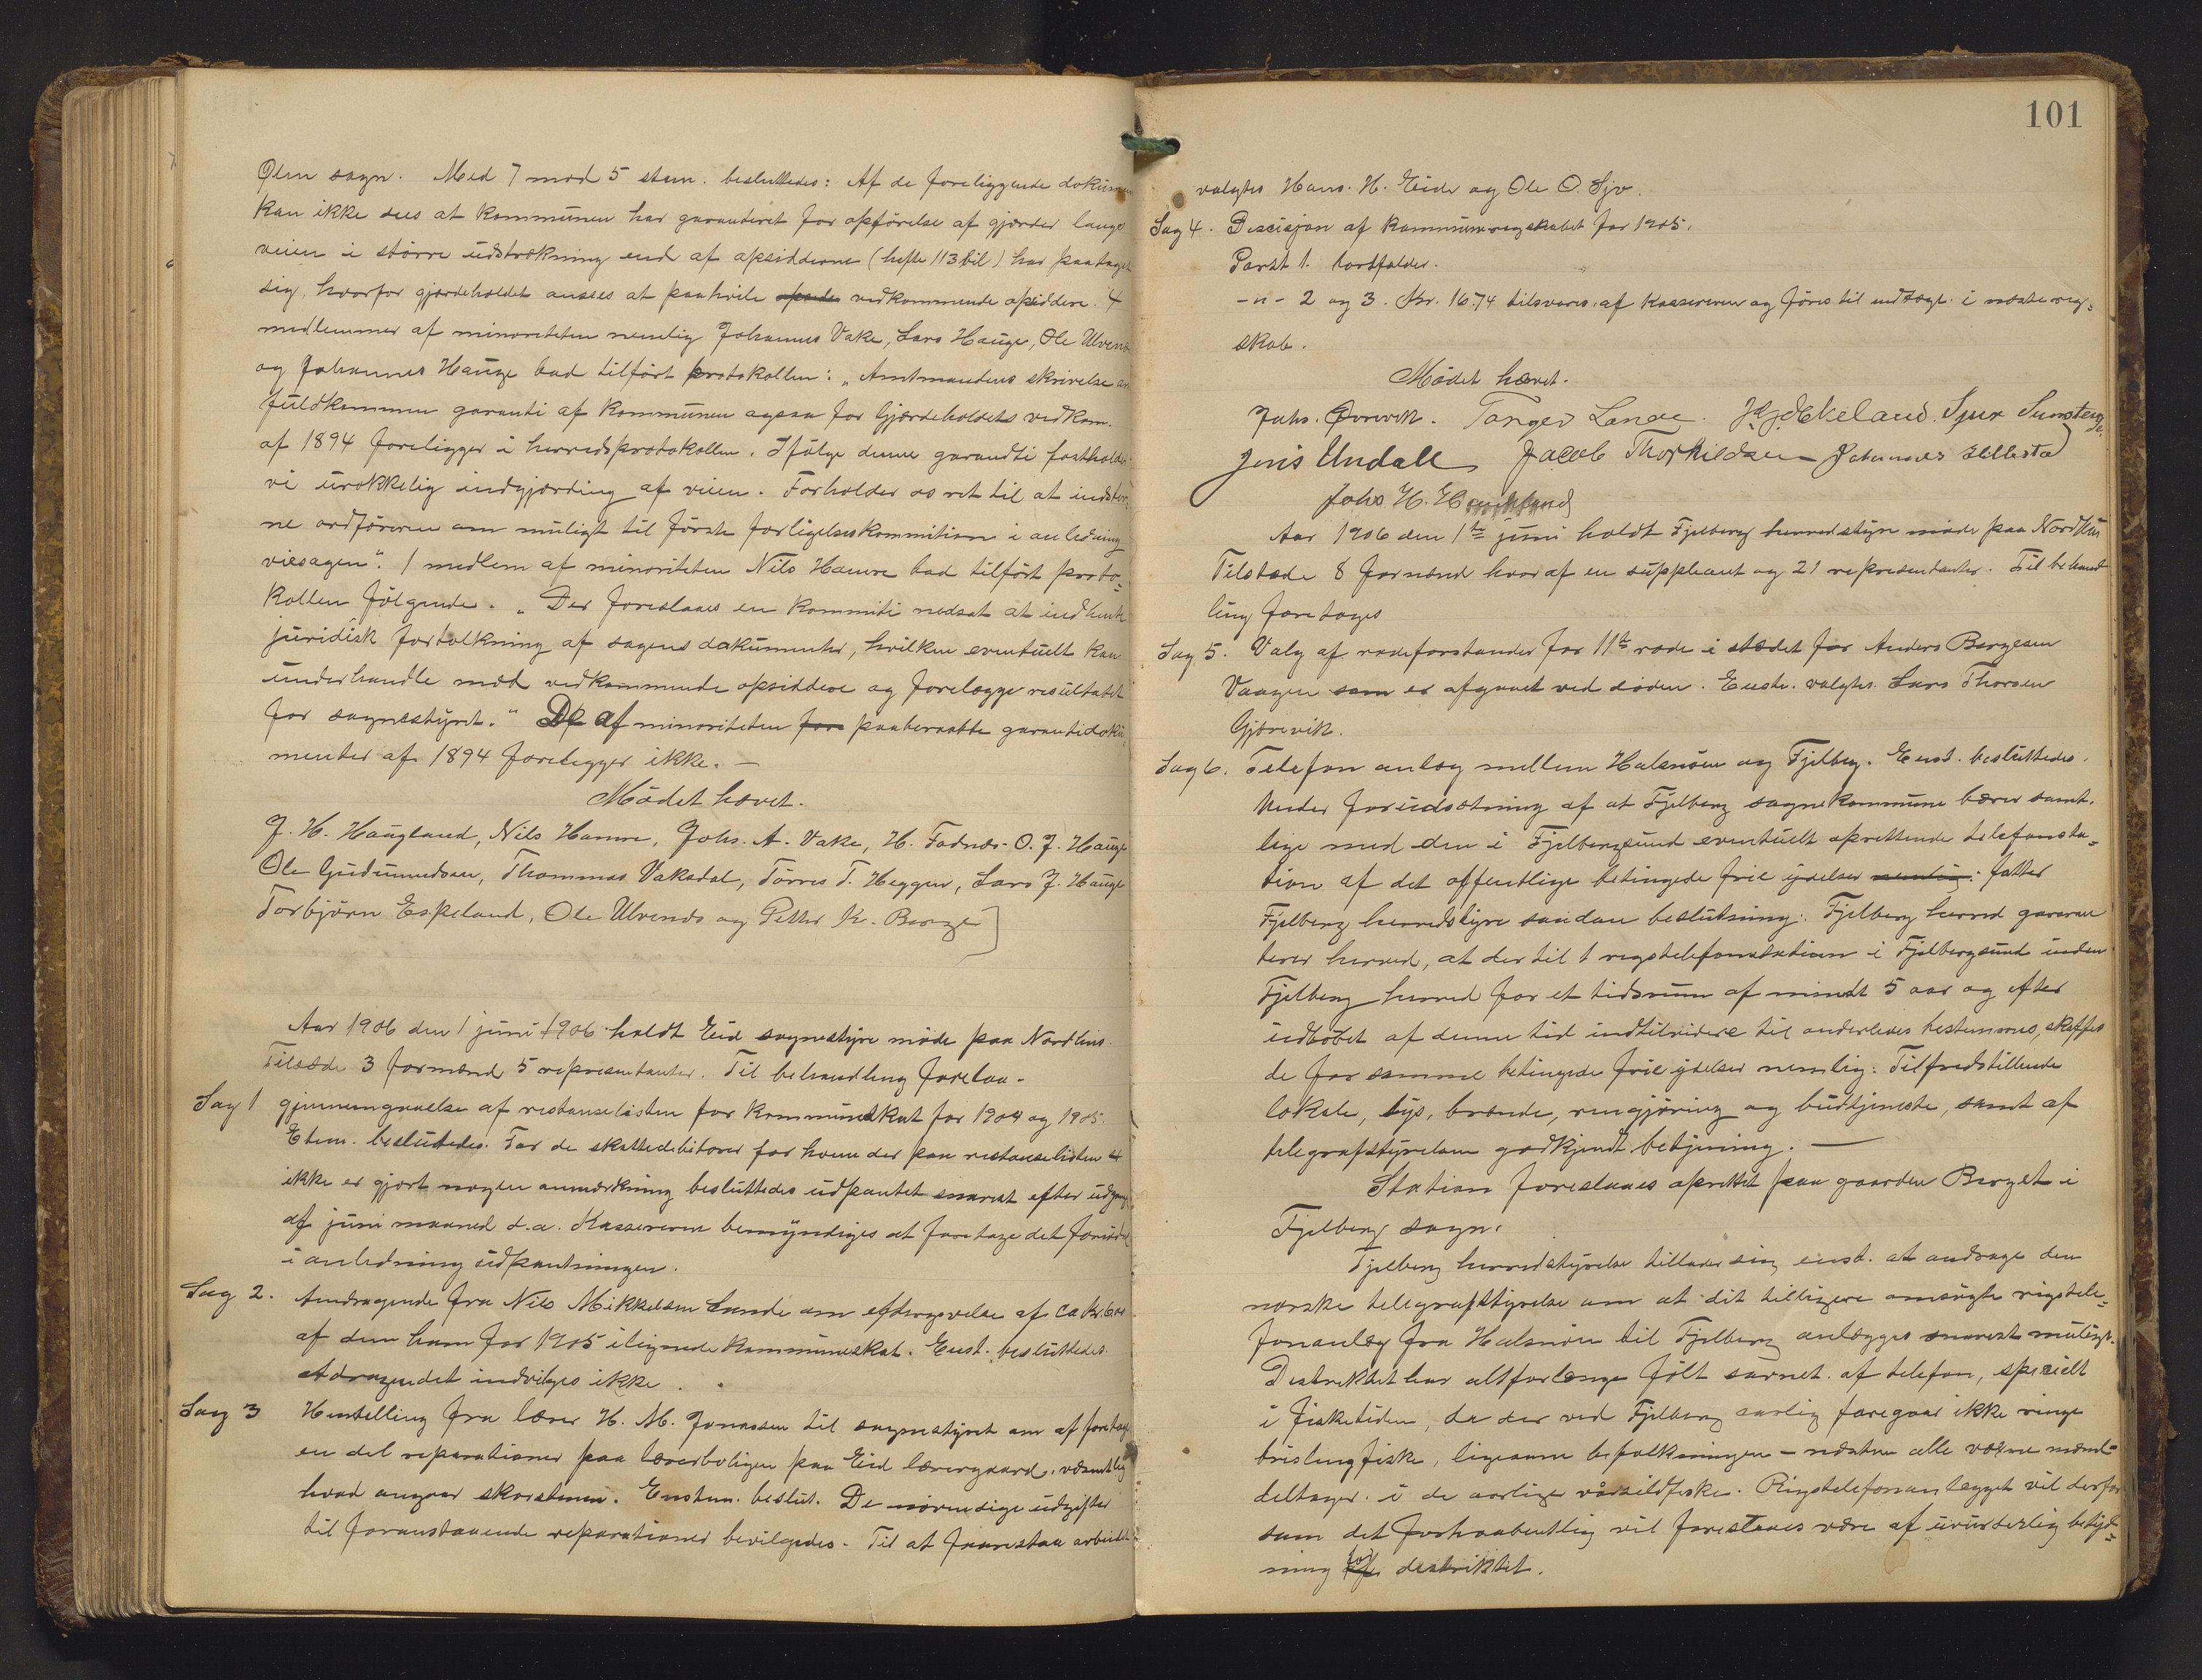 Ølen sogn. Med 7 mod 5 stem. besluttedes: Af de foreliggende dokumen
kan ikke sees at kommunen har garanteret for opførelse af gjærder langs
veien i større udstrækning end af opsidderne (hefte 113 bil) har paataget
sig, hvorfor gjærdeholdet ansees at paahvile vedkommende opsiddere. 4
medlemmer af minoriteten nemlig Johannes Vake, Lars Hauge, Ole Ulvenes
og Johannes Hauge bad tilført protokollen: „Amtmandens skrivelse
fuldkommen garanti af kommunen ogsaa for Gjærdeholdets vedkom.
af 1894 foreligger i herredsprotokollen. Ifølge denne garandti fastholder
vi urokkelig indgjærding af veien. Forholder os ret til at indstev¬
ne ordføreren om muligt til første forligelseskommition i anledning
veisagen“. 1 medlem af minoriteten Nils Hamre bad tilført proto¬
kollen følgende. „Der foreslaaes en kommite nedsat at indhente
juridisk fortolkning af sagens dokumenter, hvilken eventuelt kan
underhandle med vedkommende opsiddere og forelægge resultatet
for sognestyret.“ De af minoriteten for paaberaabte garantidoku¬
menter af 1894 foreligger ikke. —
Mødet hævet.
J. H. Haugland, Nils Hamre, Johs. A. Vake, H. Fadnæs. O. J. Hauge
Ole Gudmundsen, Thommas Vakadal, Tørres T. Heggen, Lars J. Hauge
Torbjørn Espeland, Ole Ulvenes og Petter K. Berge
Aar 1906 den 1 juni 1906 holdt Eid sognestyre møde paa Nordhus.
Tilstæde 3 formænd 5 repræsentanter. Til behandling forelaa.
Sag 1 gjennemgaaelse af restanselisten for kommuneskat for 1904 og 1905.
Estem. besluttedes. For de skattedebitorer for hvem der paa restanselisten
ikke er gjort nogen anmærkning besluttedes udpantet snarest efter udgang
af juni maaned d.a. Kassereren bemyndiges at foretage det fornødne
i anledning udpantningen.
Sag 2. Andragende fra Nils Mikkelsen Sunde om eftergivelse af ca kr. 6.00
af den ham for 1905 ilignede kommuneskat. Enst. besluttedes.
Adragendet indvilges ikke.
Sag 3 Henstilling fra lærer H. M. Jonassen til sognestyret om at foretage
en del reparationer paa lærerboligen paa Eid lærergaard, væsentlig
hvad angaar skorstenen. Enstem. beslut. De nøvendige udgifter
til foranstaaende reparationer bevilgedes. Til at forrestaa arbeidet
101
valgtes Hans. H. Eide og Ole O. Sjo.
Sag 4. Descisjon af kommuneregnskabet for 1905.
Post 1. bortfalder.
-n- 2 og 3. Kr. 16.74 tilsvares af kassereren og føres til indtægt i næste reg¬
skab.
Mødet hævet.
Johs. Øvrevik. Torger Lange. H. J. Ekeland. Sjur Sunstenge
Jens Undall Jacob Thorkildsen Johannes Hellestø
Johs H. Haukland
Aar 1906 den 1te juni holdt Fjelberg herredstyre møde paa Nordhus
Tilstæde 8 formænd hvoraf en suppleant og 21 repræsentanter. Til behand
ling foretoges
Sag 5. Valg af rodeforstander for 11te rode i stædet for Anders Børgesen
Vaagen som er afgaaet ved døden. Enste. valgtes Lars Thorsen
Gjerevik.
Sag 6. Telefon anlæg mellem Halsnøen og Fjelberg. Enst. besluttedes.
Under forudsætning af at Fjelberg sognekommune bærer samt¬
lige med den i Fjelbergsund eventuelt oprettende telefonsta¬
tion af det offentlige betingede frie ydelser nemlig: fatter
Fjelberg herredstyre saadan beslutning: Fjelberg herred garanen
terer herved, at der til 1 regstelefonstation i Fjelbergsund inden
Fjelberg herred for et tidsrum af mindst 5 aar og efter
udløbet af denne tid indtilvidere til anderledes bestemmes, skaffes
de for samme betingede frie ydelser nemlig: Tilfredstillende
lokale, lys, brænde, rengjøring og budtjeneste, samt af
telegrafstyrelsen godkjendt betjening. —
Station foreslaaes oprettet paa gaarden Berget i
Fjelberg sogn.
Fjelberg herredstyrelse tillader sig enst. at andrage den
norske telegrafstyrelse om at dit tilligere ansøgte rigstele¬
fonanlæg fra Halsnøen til Fjelberg anlægges snarest muligt.
Destriktet har altforlænge følt savnet af telefon, specielt
i fisketiden, da der ved Fjelberg aarlig foregaar ikke ringe
brislingfiske, ligesom befolkningen – næsten alle voksne mænd –
deltager i de aarlige vårsildfiske. Rigstelefonanlægget vil derfor
som det forhaabentlig vil forestaaes være af uvurderlig betyd¬
ning for destriktet.